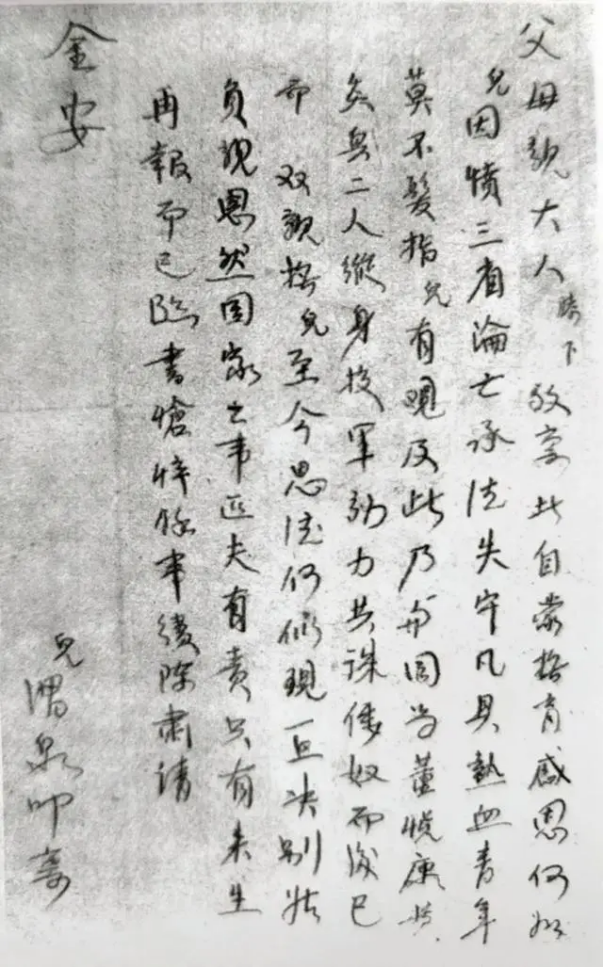 父母親大人膝下敬稟者自蒙撫育感恩何如
兒因憤三省淪亡承德失守凡具熱血青年
莫不髮指兒有觀及此乃與同学董悦康共
矣吳二人縱身投軍効力共誅倭奴而後已
第 双親撫兒至今恩德何似現一旦决别姑
負親恩然国家之事匹夫有責只有来生
再報而已臨書愴悴餘事後陳肅請
金安
兒渭泉叩稟